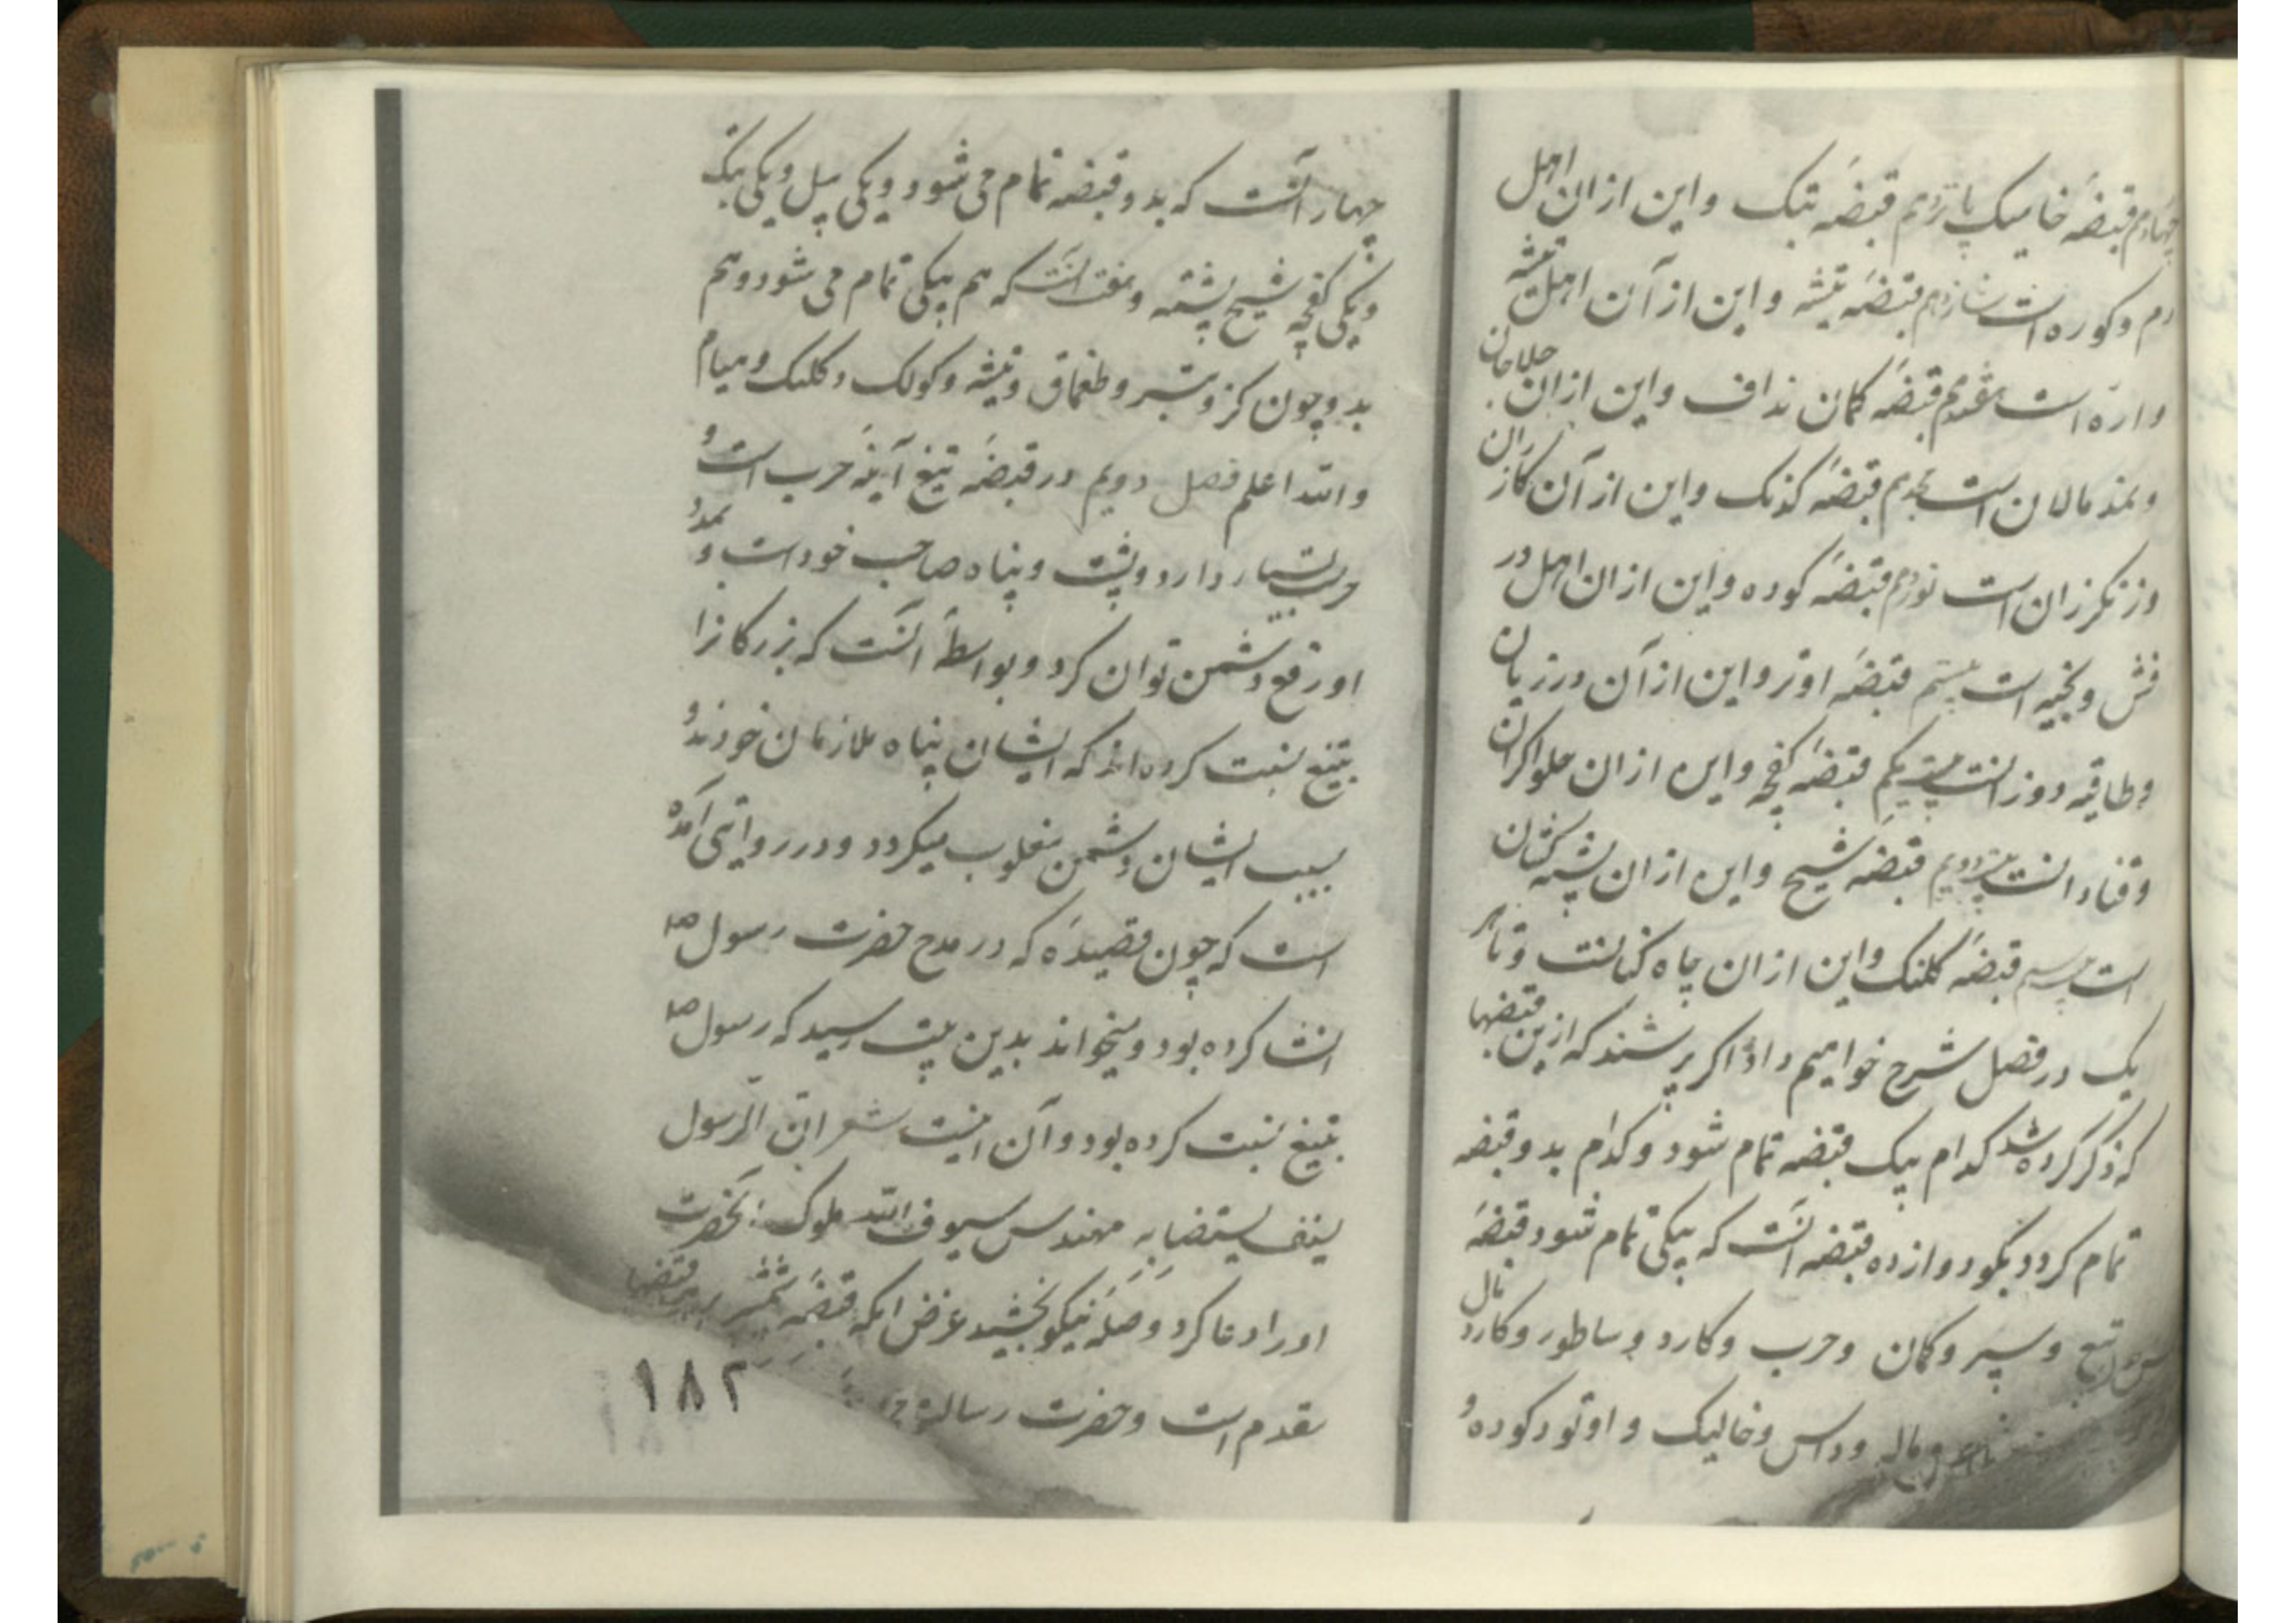 چهاردهم قبضهٔ خایسک پانزدهم قبضهٔ تبک و این ازان اهل
دم و کوره است شانزدهم قبضهٔ تیشه و این از آن اهل تیشه
و ارّه است هفدهم قبضهٔ کمان نداف و این ازان حلاجان
و نمد مالان است هجدهم قبضهٔ کدنک و این از آن کازران
و زنکرزان است نوزدهم قبضهٔ کوده و این ازان اهل در
فش و بخیه است بیستم قبضهٔ اوتو و این از آن درزیان
و طاقیه دوزانست بیست یکم قبضهٔ کفچه و این ازان حلواکران
و قنادانست بیست دویم قبضهٔ شیح و این ازان پشته کشان
است بیست سیم قبضهٔ کلنک و این ازان چاه کنانست و تا هر
یک در فصل شرح خواهیم داد اکر پرسند که ازین قبضها
که ذکر کرده شد کدام بیک قبضه تمام شود و کدام بدو قبضه
تمام کردد بکو دوازده قبضه آنست که بیکی تمام شود قبضهٔ
تیغ و سپر و کمان و حرب و کارد و ساطور و کارد نال
و ماله و داس و خالیک و اوتو و کوده و
چهار آنست که بدو قبضه تمام می شود و یکی بیل و یکی تبک
و یکی کفچه شیح پشته و هفت آنست که هم بیکی تمام می شود و هم
بدو چون کرز و تبر و طغماق و تیشه و کولک و کلنک و میام
والله اعلم فصل دویم در قبضهٔ تیغ آینهٔ حرب است و
حرب بسیار دارد و پشت و پناه صاحب خود است و بمدد
او رفع دشمن توان کرد و بواسطهٔ آنست که بزرکانرا
بتیغ نسبت کرده اند که ایشان پناه ملازمان خودند و
بسبب ایشان دشمن مغلوب میکردد و در روایتی آمده
است که چون قصیدهٔ که در مدح حضرت رسول صه
انشا کرده بود و میخواند بدین بیت رسید که رسول صه
بتیغ نسبت کرده بود و آن اینست شعر ان الرسول
لسیف یستضا به مهندس سیوف الله ملوک آنحضرت
او را دعا کرد و صلهٔ نیکو بخشید غرض انکه قبضهٔ شمشیر بر قبضها
مقدم است و حضرت رسالة
۱۸۲